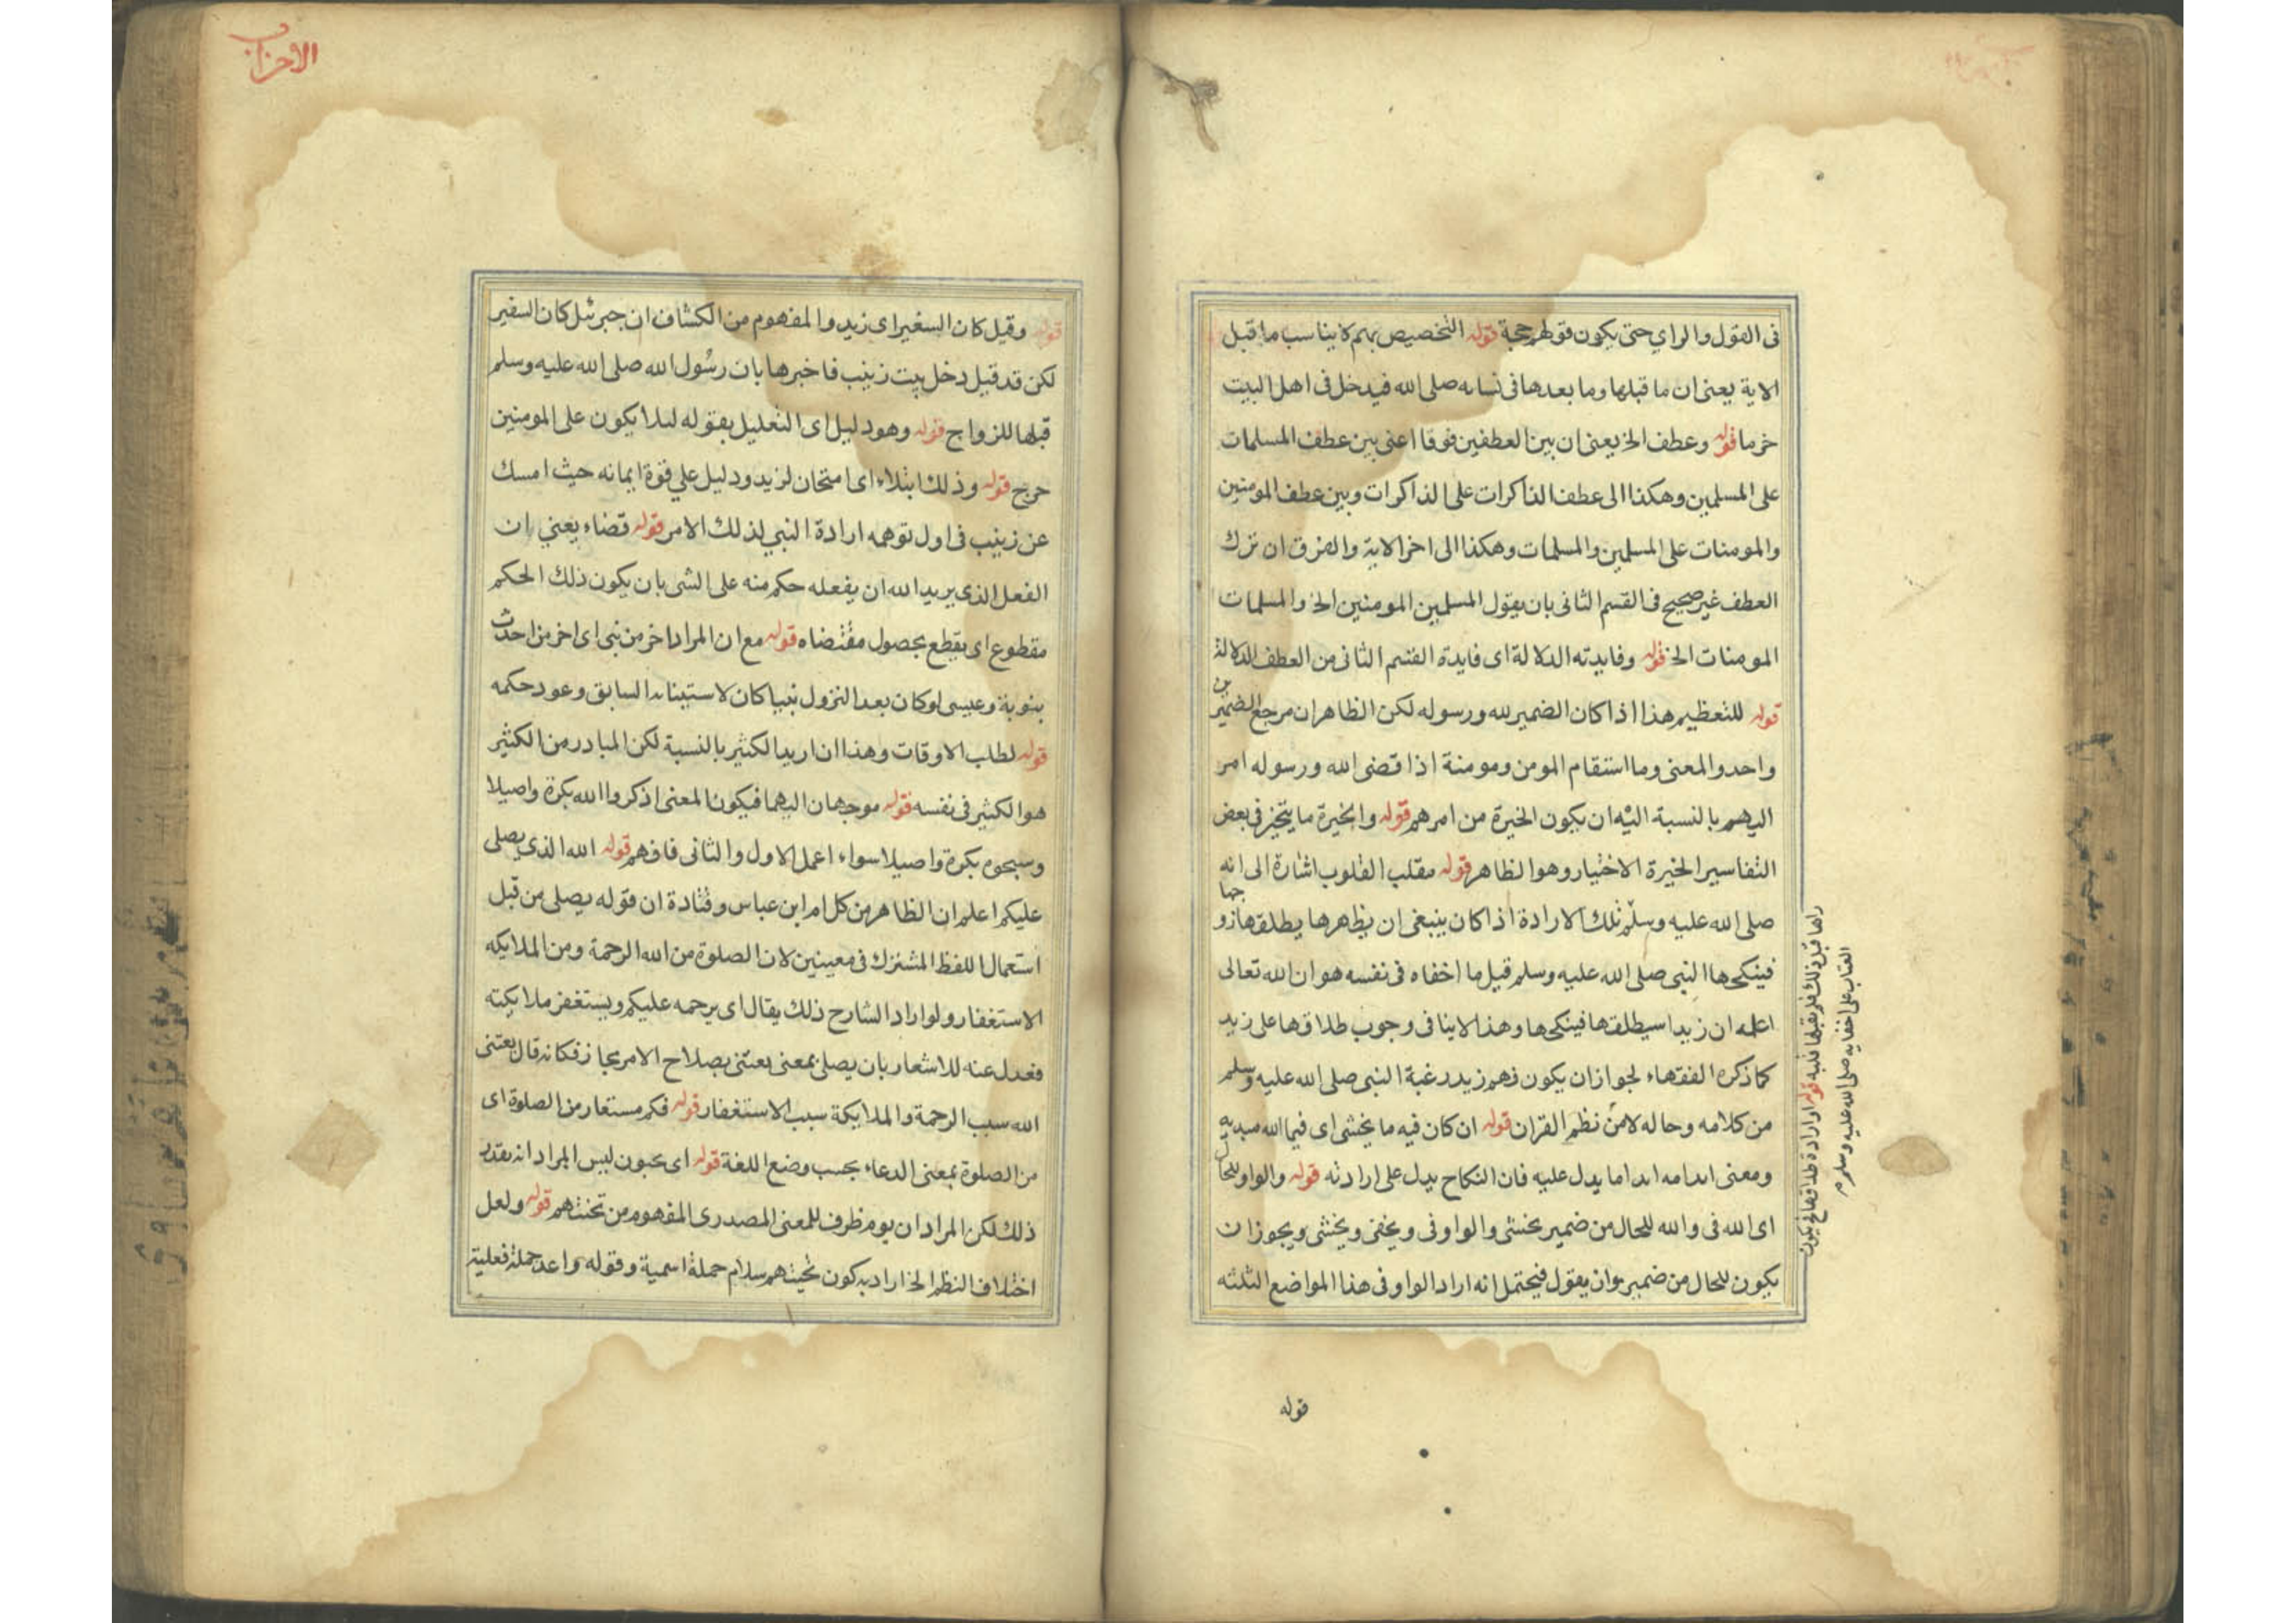 فى القول والراي حتى يكون قولهم حجة قوله التخصيص بهم لا يناسب ما قبل
الاية يعنى ان ما قبلها وما بعدها فى نسائه صلى الله فيدخل فى اهل البيت
قوله وعطف الخ يعنى ان بين العطفين فرقا اعنى بين عطف المسلمات
على المسلمين وهكذا الى عطف الذاكرات على الذاكرات وبين عطف المومنين
والمومنات على المسلمين والمسلمات وهكذا الى اخر الاية والفرق ان ترك
العطف غير صحيح فى القسم الثانى بان يقول المسلمين المومنين الخ والمسلمات
المومنات الخ قوله وفايدته الدلالة اى فايدة القسم الثانى من العطف الدلالة
قوله للتعظيم هذا اذا كان الضمير لله ورسوله لكن الظاهر ان مرجع الضميرين
واحد والمعنى وما استقام المومن ومومنة اذا قضى الله ورسوله امر
اليهم بالنسبة اليه ان يكون الخيرة من امرهم قوله والخيرة ما يتخير فى بعض
التفاسير الخيرة الاختيار وهو الظاهر قوله مقلب القلوب اشارة الى انه
صلى الله عليه وسلم تلك الارادة اذا كان ينبغى ان يظهرها يطلقها زوجها
فينكحها النبى صلى الله عليه وسلم قيل ما اخفاه فى نفسه هو ان الله تعالى
اعلمه ان زيدا سيطلقها فينكحها وهذا لا ينافى وجوب طلاقها على زيد
كما ذكره الفقهاء لجواز ان يكون فهم زيد رغبة النبى صلى الله عليه وسلم
من كلامه وحاله لا من نظم القران قوله ان كان فيه ما يخشى اى فيما الله مبديه
ومعنى ابدا ما يدل عليه فان النكاح يدل على ارادته قوله والواو للحال
اى الله فى والله للحال من ضمير يخشى والواو فى ويخفى ويخشى ويجوز ان
يكون للحال من ضمير وان يقول فيحتمل انه اراد الواو فى هذا المواضع الثلثه
راها قبل ذلك فلم يقبلها قلبه قوله او ارادة طلاقها فيكون
العتاب على اخفايه صلى الله عليه وسلم
قوله
الاحزاب
قوله وقيل كان السفير اى زيد والمفهوم من الكشاف ان جبرئل كان السفير
لكن قد قيل دخل بيت زينب فاخبرها بان رسول الله صلى الله عليه وسلم
قبلها للزواج قوله وهو دليل اى التعليل بقوله لئلا يكون على المومنين
حرج قوله وذلك ابتلاء اى امتحان لزيد ودليل على قوة ايمانه حيث امسك
عن زينب فى اول توهمه ارادة النبي لذلك الامر قوله قضاء يعني ان
الفعل الذى يريد الله ان يفعله حكم منه على الشى بان يكون ذلك الحكم
مقطوع اى يقطع بحصول مقتضاه قوله مع ان المراد اخر من نبى اى اخر من احدث
بنوبة وعيسى لو كان بعد النزول نبيا كان لاستيناف السابق وعود حكمه
قوله لطلب الاوقات وهذا ان اريد الكثير بالنسبة لكن المبادر من الكثير
هو الكثير فى نفسه قوله موجهان اليهما فيكون المعنى اذكروا الله بكرة واصيلا
وسبحوه بكرة واصيلا سواء اعمل الاول والثانى فافهم قوله الله الذى يصلى
عليكم اعلم ان الظاهر من كلام ابن عباس وقتادة ان قوله يصلى من قبل
استعمال اللفظ المشترك فى معينين لان الصلوة من الله الرحمة ومن الملايكه
الاستغفار ولو اراد الشارح ذلك يقال اى يرحمه عليكم ويستغفر ملايكته
فعدل عنه للاشعار بان يصلى بمعنى يعتنى بصلاح الامر مجاز فكانه قال يعتنى
الله سبب الرحمة والملايكة سبب الاستغفار قوله فكم مستعار من الصلوة اى
من الصلوة بمعنى الدعاء بحسب وضع اللغة قوله اى يحيون ليس المراد انه بقدر
ذلك لكن المراد ان يوم ظرف للمعنى المصدرى المفهوم من تحيتهم قوله ولعل
اختلاف النظم الخ اراد به كون تحيتهم سلام جملة اسمية وقوله واعد جملة فعلية